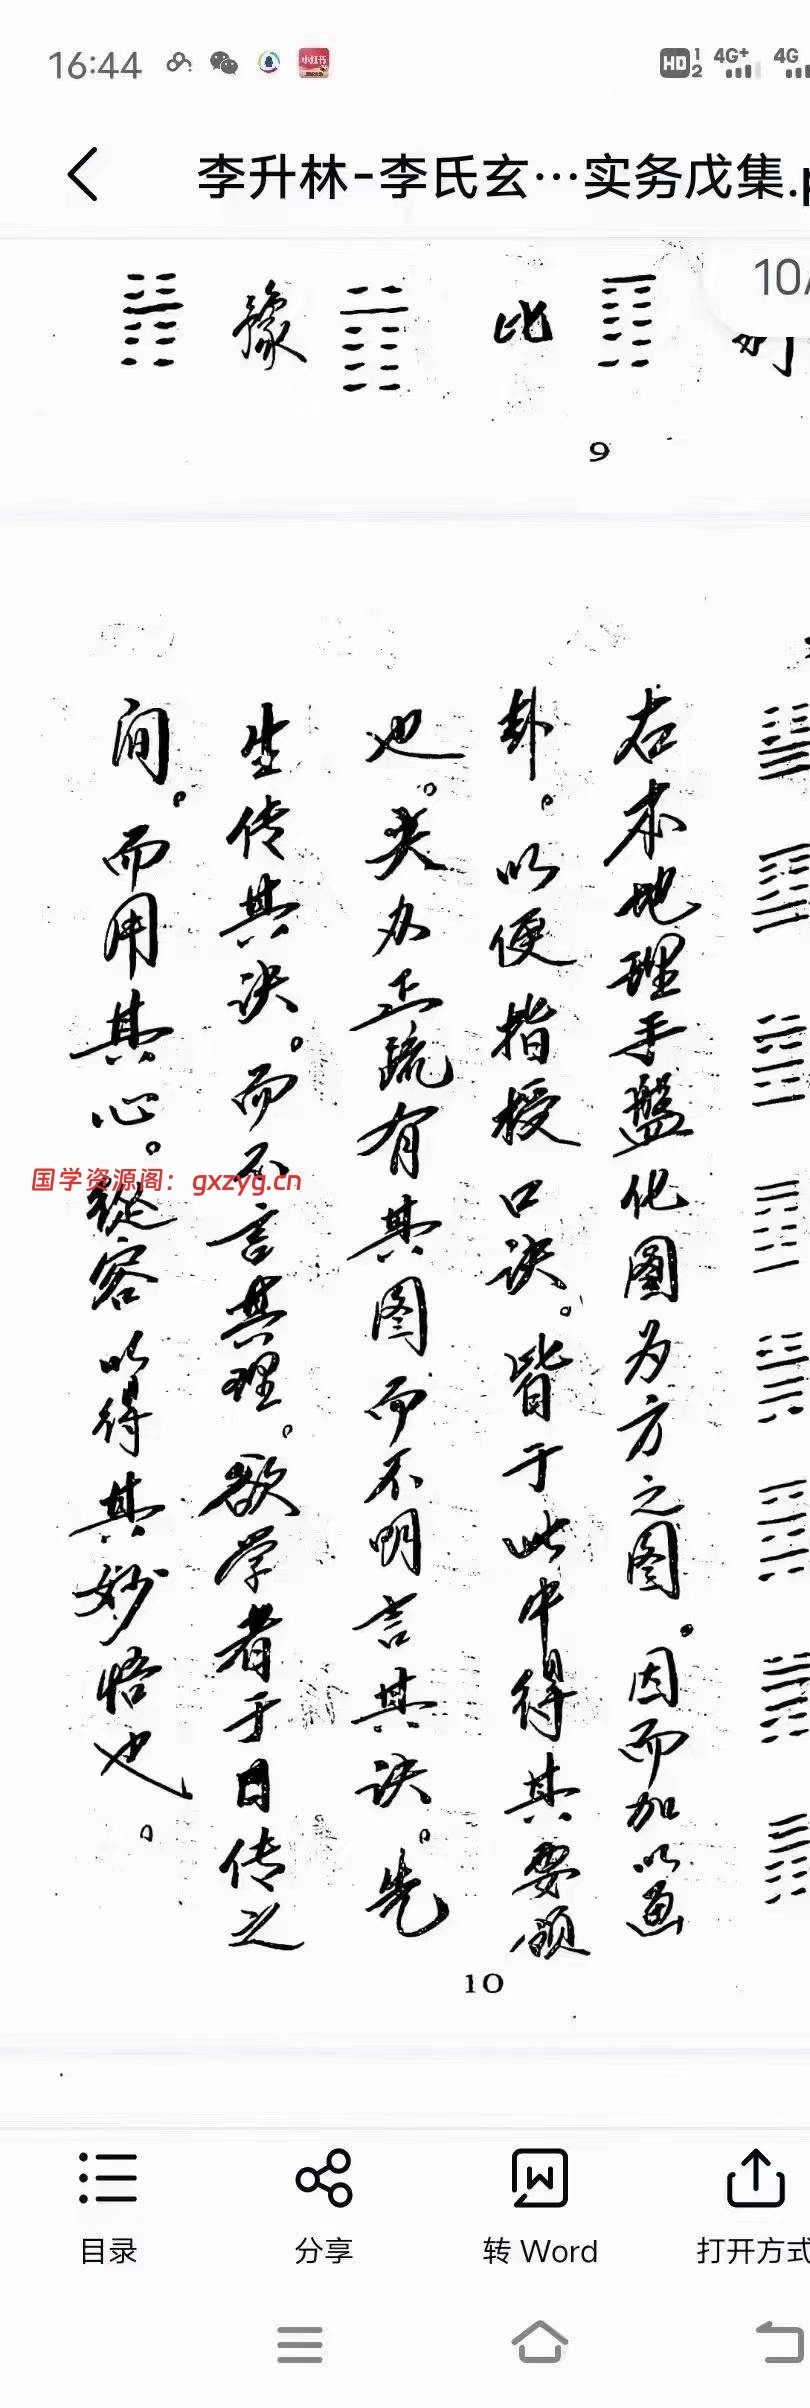 16:44
HD 1 2 4G+ 4G
李升林-李氏玄…实务戊集.p
10/
剥
比
豫
9
右本地理手盤化图为方之图。因而加以画
卦。以便指授口诀。皆于此中得其要领
也。类办正疏有其图而不明言其诀。先
生传其决。而不言其理。欲学者于日传之
间。而用其心。從容以得其妙悟也。
国学资源阁：gxzyg.cn
10
目录
分享
转 Word
打开方式